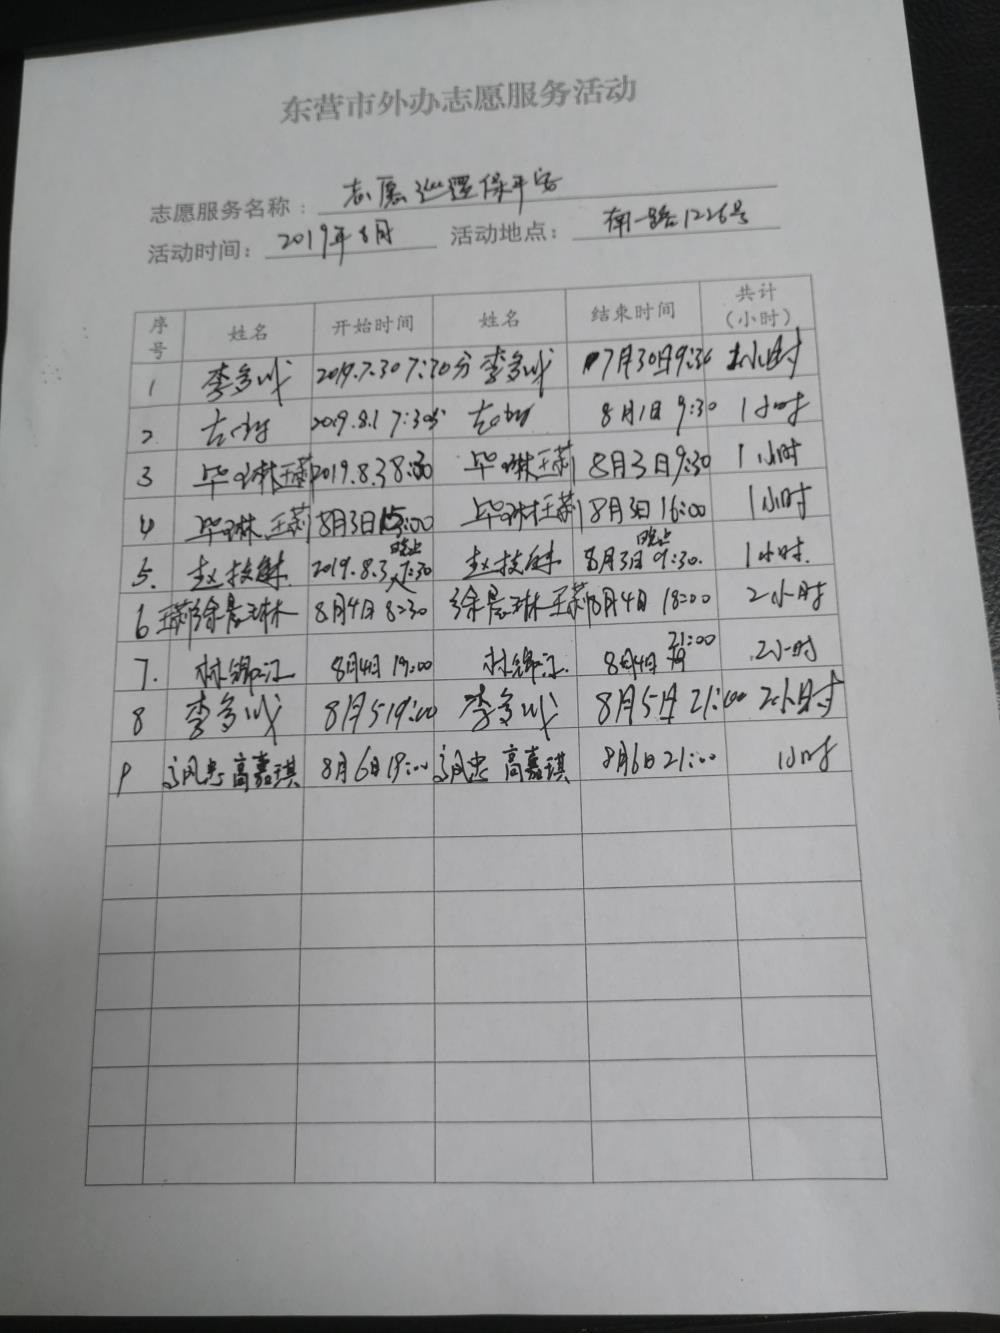 东营市外办志愿服务活动
志愿服务名称：志愿巡逻保平安
活动时间：2019年8月 活动地点：南一路1226号
序号 姓名 开始时间 姓名 结束时间 共计（小时）
1 李多 2019.7.30 7:30分 李多 7月30日9:30 小时
2 2019.8.1 7:30 8月1日 9:30 1小时
3 毕琳王莉 2019.8.3 8:30 毕琳王莉 8月3日9:30 1小时
4 毕琳.王莉 8月3日15:00 毕琳王莉 8月3日 16:00 1小时
5. 赵 2019.8.3 晚上7:30 赵 8月3日 晚上9:30. 1小时.
6 王莉徐晨琳 8月4日 8:30 徐晨琳 王莉 8月4日 18:00 2小时
7. 林锦江 8月4日 19:00 林锦江. 8月4日 21:00 2小时
8 李多 8月5 19:00 李多 8月5日 21:00 2小时
9 高嘉琪 8月6日19:00 高嘉琪 8月6日21:00 小时